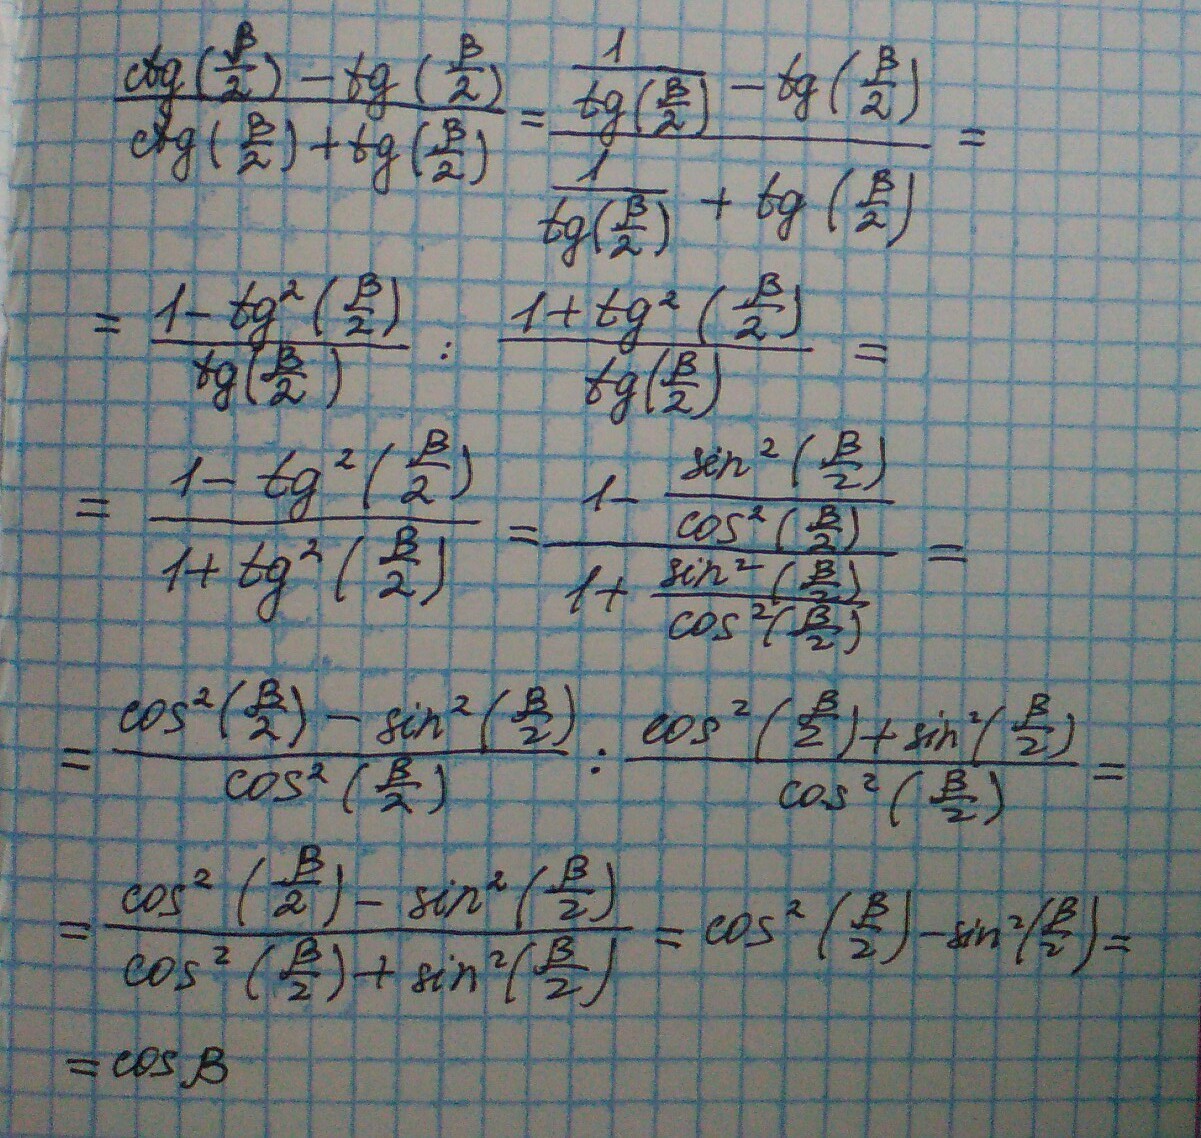 (ctg(β/2) - tg(β/2))/(ctg(β/2) + tg(β/2)) = (1/tg(β/2) - tg(β/2))/(1/tg(β/2) + tg(β/2)) =
= (1 - tg²(β/2))/tg(β/2) : (1 + tg²(β/2))/tg(β/2) =
= (1 - tg²(β/2))/(1 + tg²(β/2)) = (1 - sin²(β/2)/cos²(β/2))/(1 + sin²(β/2)/cos²(β/2)) =
= (cos²(β/2) - sin²(β/2))/cos²(β/2) : (cos²(β/2) + sin²(β/2))/cos²(β/2) =
= (cos²(β/2) - sin²(β/2))/(cos²(β/2) + sin²(β/2)) = cos²(β/2) - sin²(β/2) =
= cos β